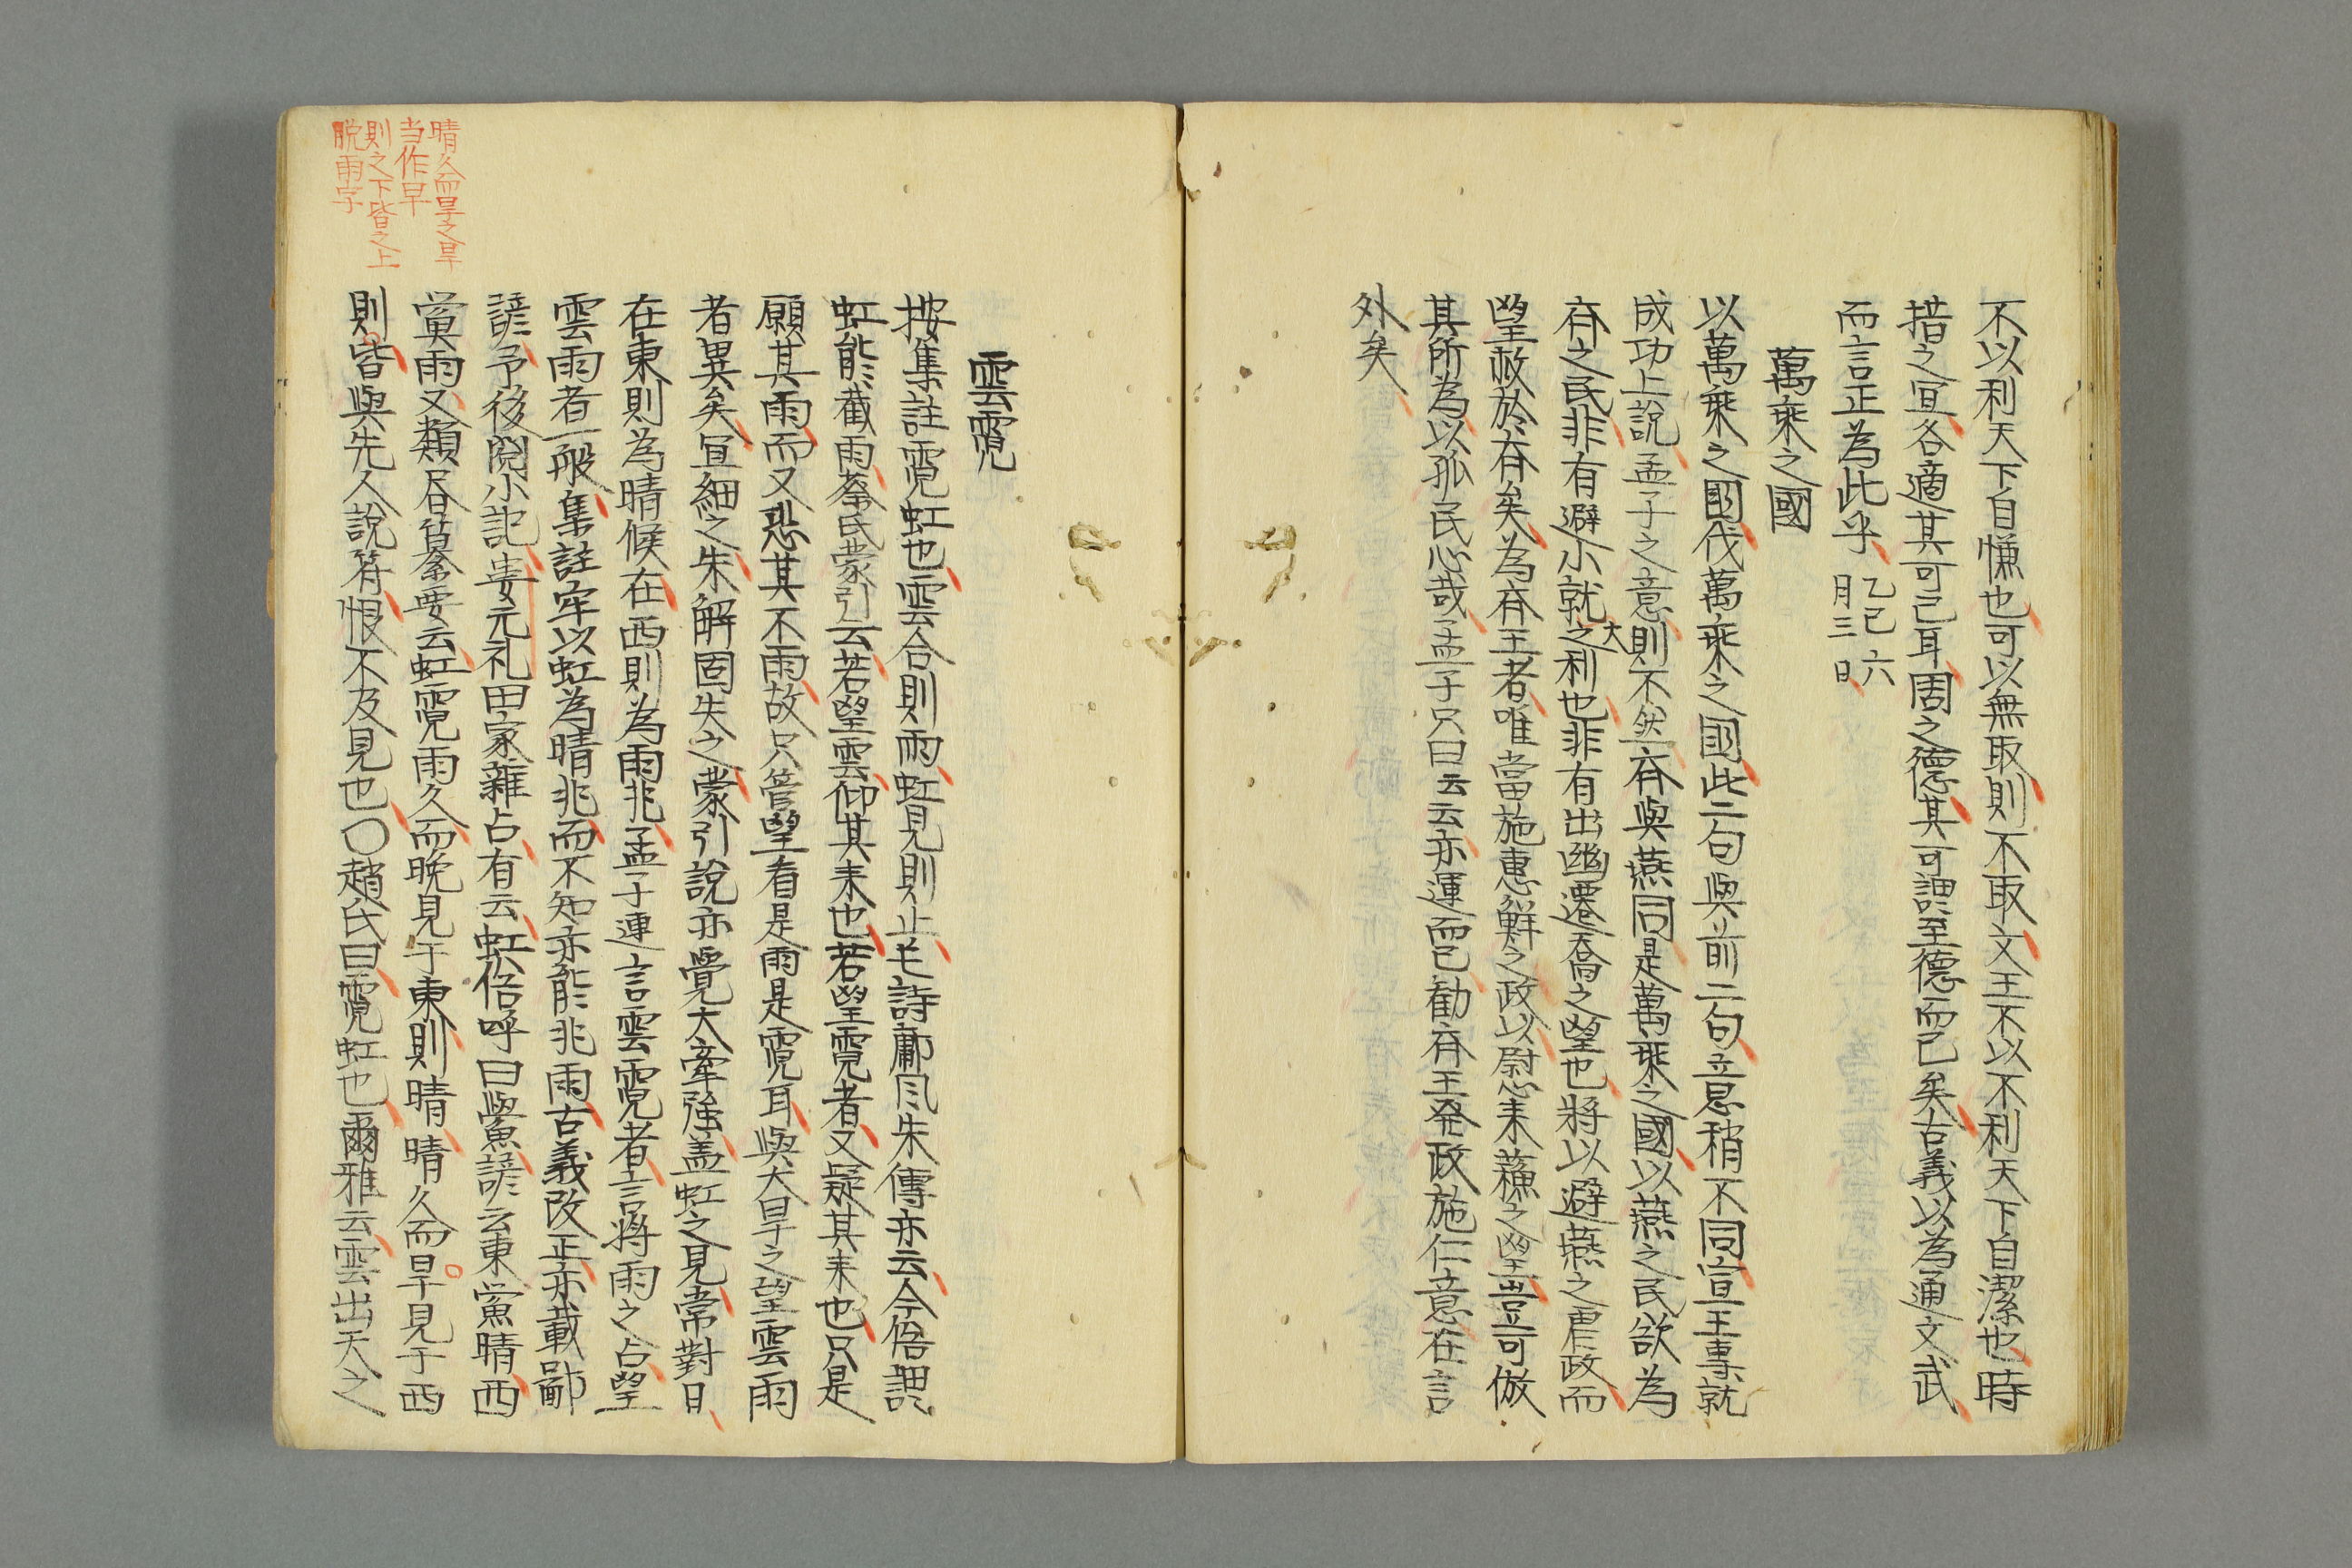 不以利天下自慊也可以無取則不取文王不以不利天下自潔也時
措之宜各適其可已耳周之德其可謂至德而已矣古義以為通文武
而言正為此乎
乙巳六
月三日
萬乘之國
以萬乘之國伐萬乘之國此二句與前二句意稍不同宣王專就
成功上說孟子之意則不然齊與燕同是萬乘之國以燕之民欲為
齊之民非有避小就大之利也非有出幽遷喬之望也將以避燕之虐政而
望赦於齊矣為齊王者唯當施惠鮮之政以慰来蘓之望豈可倣
其所為以孤民心哉孟子只曰云云亦運而已勧齊王発政施仁意在言
外矣
雲霓
按集註霓虹也雲合則雨虹見則止毛詩鄘风朱傳亦云今俗謂
虹能截雨蔡氏蒙引云若望雲仰其来也若望霓者又疑其来也只是
願其雨而又恐其不雨故只管望看是雨是霓耳與大旱之望雲雨
者異矣宜細之朱解固失之蒙引說亦覺大牽強盖虹之見常對日
在東則為晴候在西則為雨兆孟子連言雲霓者言將雨之占望
雲雨者一般集註牢以虹為晴兆而不知亦能兆雨古義改正亦載鄙
諺予後閲小記婁元礼田家雜占有云虹俗呼曰鱟諺云東鱟晴西
鱟雨又類居纂要云虹霓雨久而晚見于東則晴晴久而旱見于西
則皆與先人說符恨不及見也〇趙氏曰霓虹也爾雅云雲出天之
晴久而旱之旱
当作早
則之下皆之上
脱雨字